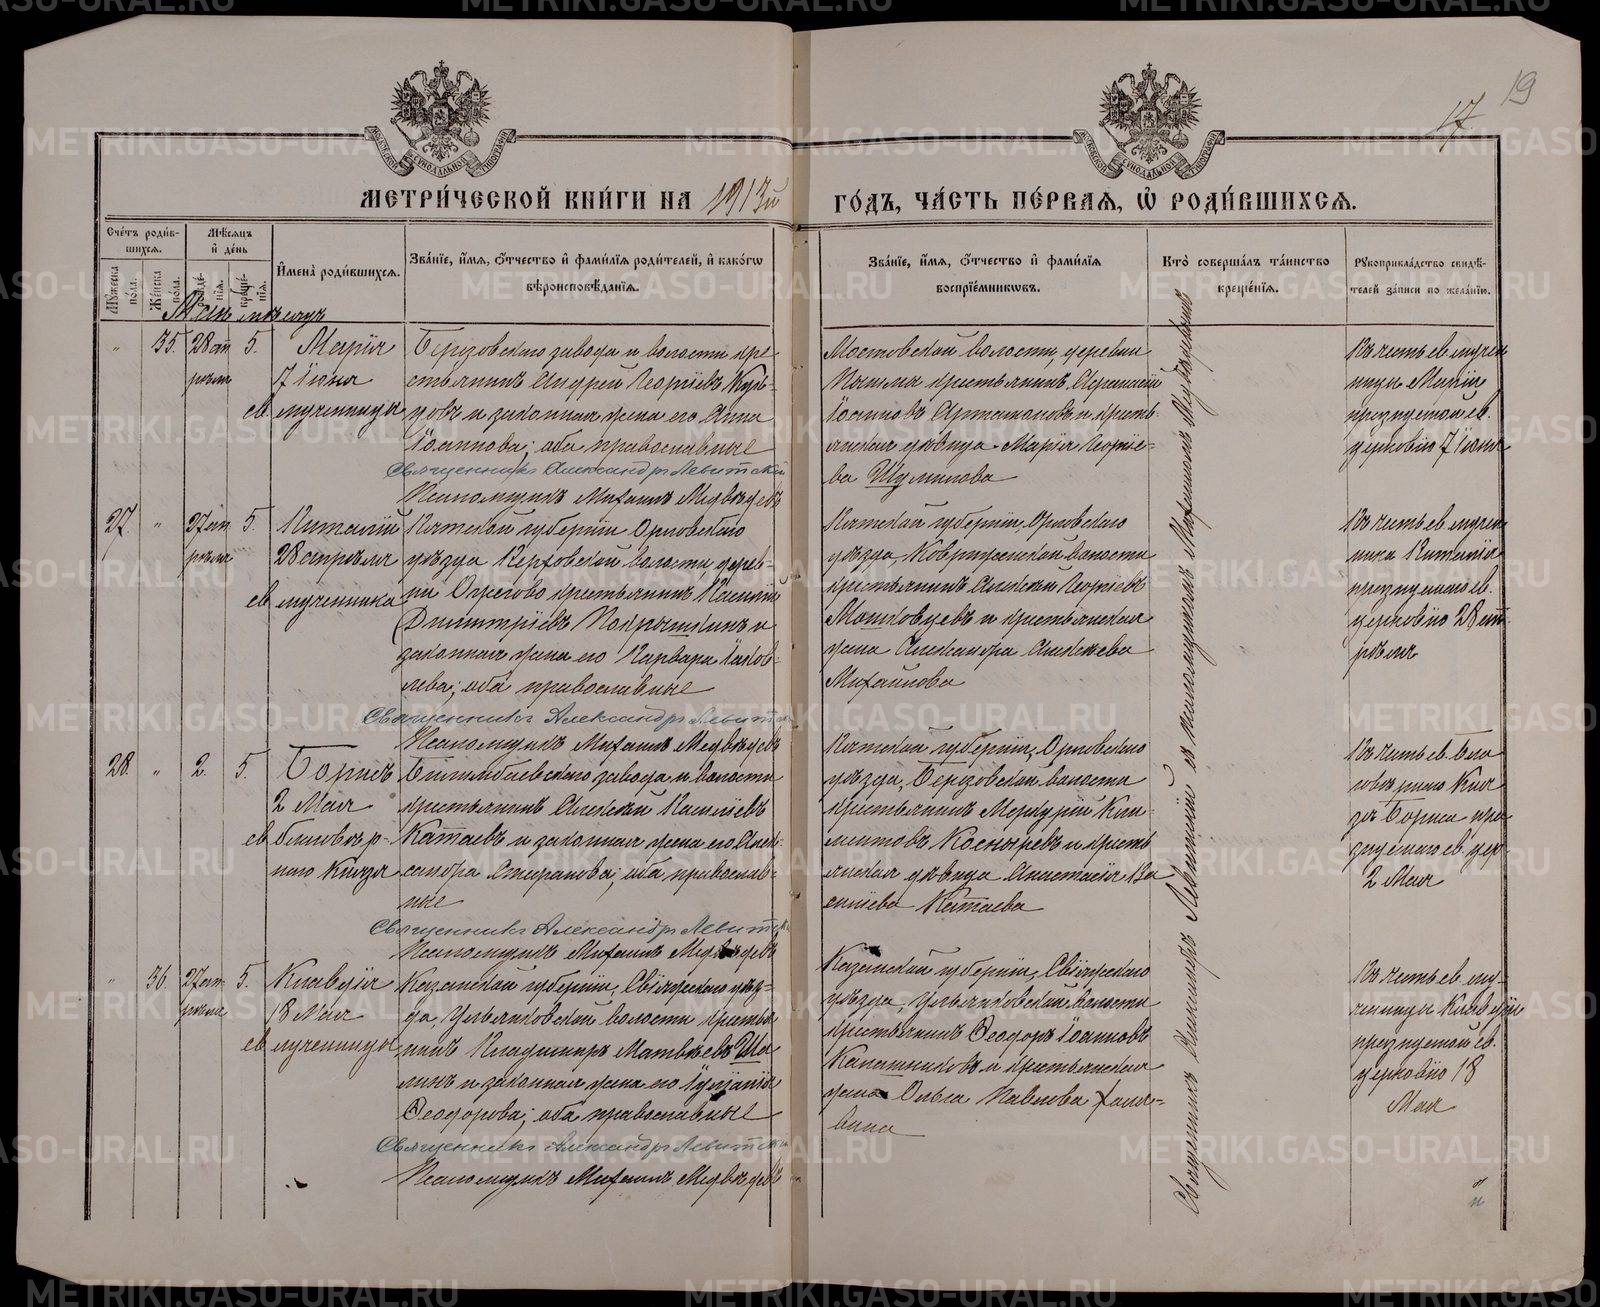 19
17
МЕТРИ́ЧЕСКОЙ КНИ́ГИ НА 1913й ГО́ДЪ, ЧА́СТЬ ПЕ́РВАѦ, Ѡ҆ РОДИ́ВШИХСѦ.
Сче́тъ роди́в-
шихсѧ.
Мꙋ́жеска пола.
Же́нска пола.
Мѣ́сѧцъ
и҆ де́нь
рожде́-
нїѧ.
креще́-
нїѧ.
И҆мена̀ роди́вшихсѧ.
Зва́нїе, и҆́мѧ, ѻ҆́тчество и҆ фами́лїѧ роди́телей, и҆ како́гѡ
вѣроисповѣ́данїѧ.
Зва́нїе, и҆́мѧ, ѻ҆́тчество и҆ фами́лїѧ
воспрїе́мникѡвъ.
Кто̀ соверша́лъ та́инство
креще́нїѧ.
Рꙋкоприкла́дство свидѣ́-
телей за́писи по жела́нїю.
Май мѣсяцъ
" 35. 28 ап
рѣля
5.
Марія
7 Іюня
св мученицы
Березовскаго завода и волости кре
стьянинъ Андрей Георгіевъ
и законная жена его Анна
Іоаннова; оба православные
Священникъ Александръ Левитскій
Псаломщикъ Михаилъ Медвѣдевъ
Мостовской волости, деревни
Пышмы крестьянинъ
Іоанновъ Артамоновъ и кресть-
янская дѣвица Марія Георгіе-
ва Шумилова
Въ честь св. муче
ницы Маріи
празднуемой св.
церковію 7 Іюня
27. " 27 ап
рѣля
5.
Виталій
28 апрѣля
св мученика
Вятской губерніи Орловскаго
уѣзда Верховской волости, дерев-
ни крестьянинъ Василій
Димитріевъ Покрышкинъ и
законная жена его Варвара Іаков-
лева; оба православные
Священникъ Александръ Левитскій
Псаломщикъ Михаилъ Медвѣдевъ
Вятской губерніи, Орловскаго
уѣзда, волости
крестьянинъ Алексѣй Георгіевъ
Мошковцевъ и крестьянская
жена Александра Алексѣева
Михайлова
Въ честь св. муче
ника Виталія
празднуемаго св.
церковію 28 ап-
рѣля
28. " 2. 5.
Борисъ
2 Мая
св благовѣр-
наго Князя
Билимбаевскаго завода и волости
крестьянинъ Алексѣй Васильевъ
Катаевъ и законная жена его Алек-
сандра Стефанова; оба православ-
ные
Священникъ Александръ Левитскій
Псаломщикъ Михаилъ Медвѣдевъ
Вятской губерніи, Орловскаго
уѣзда, Березовской волости
крестьянинъ Меркурій Кли-
ментовъ Косныревъ и кресть
янская дѣвица Анастасія Ва
сильева Катаева
Въ честь св. Бла
говѣрнаго Кня
зя Бориса пра
зднуемаго св. цер
2 Мая
" 36. 27 ап
рѣля
5.
Клавдія
18 Мая
св мученицы
Казанской губерніи, Свіяжскаго уѣз-
да, Ульянковской волости, крестья
нинъ Владимиръ Матвѣевъ Ша
линъ и законная жена его Іуліанія
Ѳеодорова; оба православные
Священникъ Александръ Левитскій
Псаломщикъ Михаилъ Медвѣдевъ
Казанской губерніи, Свіяжскаго
уѣзда, Ульянковской волости
крестьянинъ Ѳеодоръ Іоанновъ
Калашниковъ и крестьянская
жена Ольга Павлова
Въ честь св. му-
ченицы Клавдіи
празднуемой св.
церковію 18
Мая
Священникъ Александръ Левитскій съ псаломщикомъ Михаиломъ Медвѣдевымъ